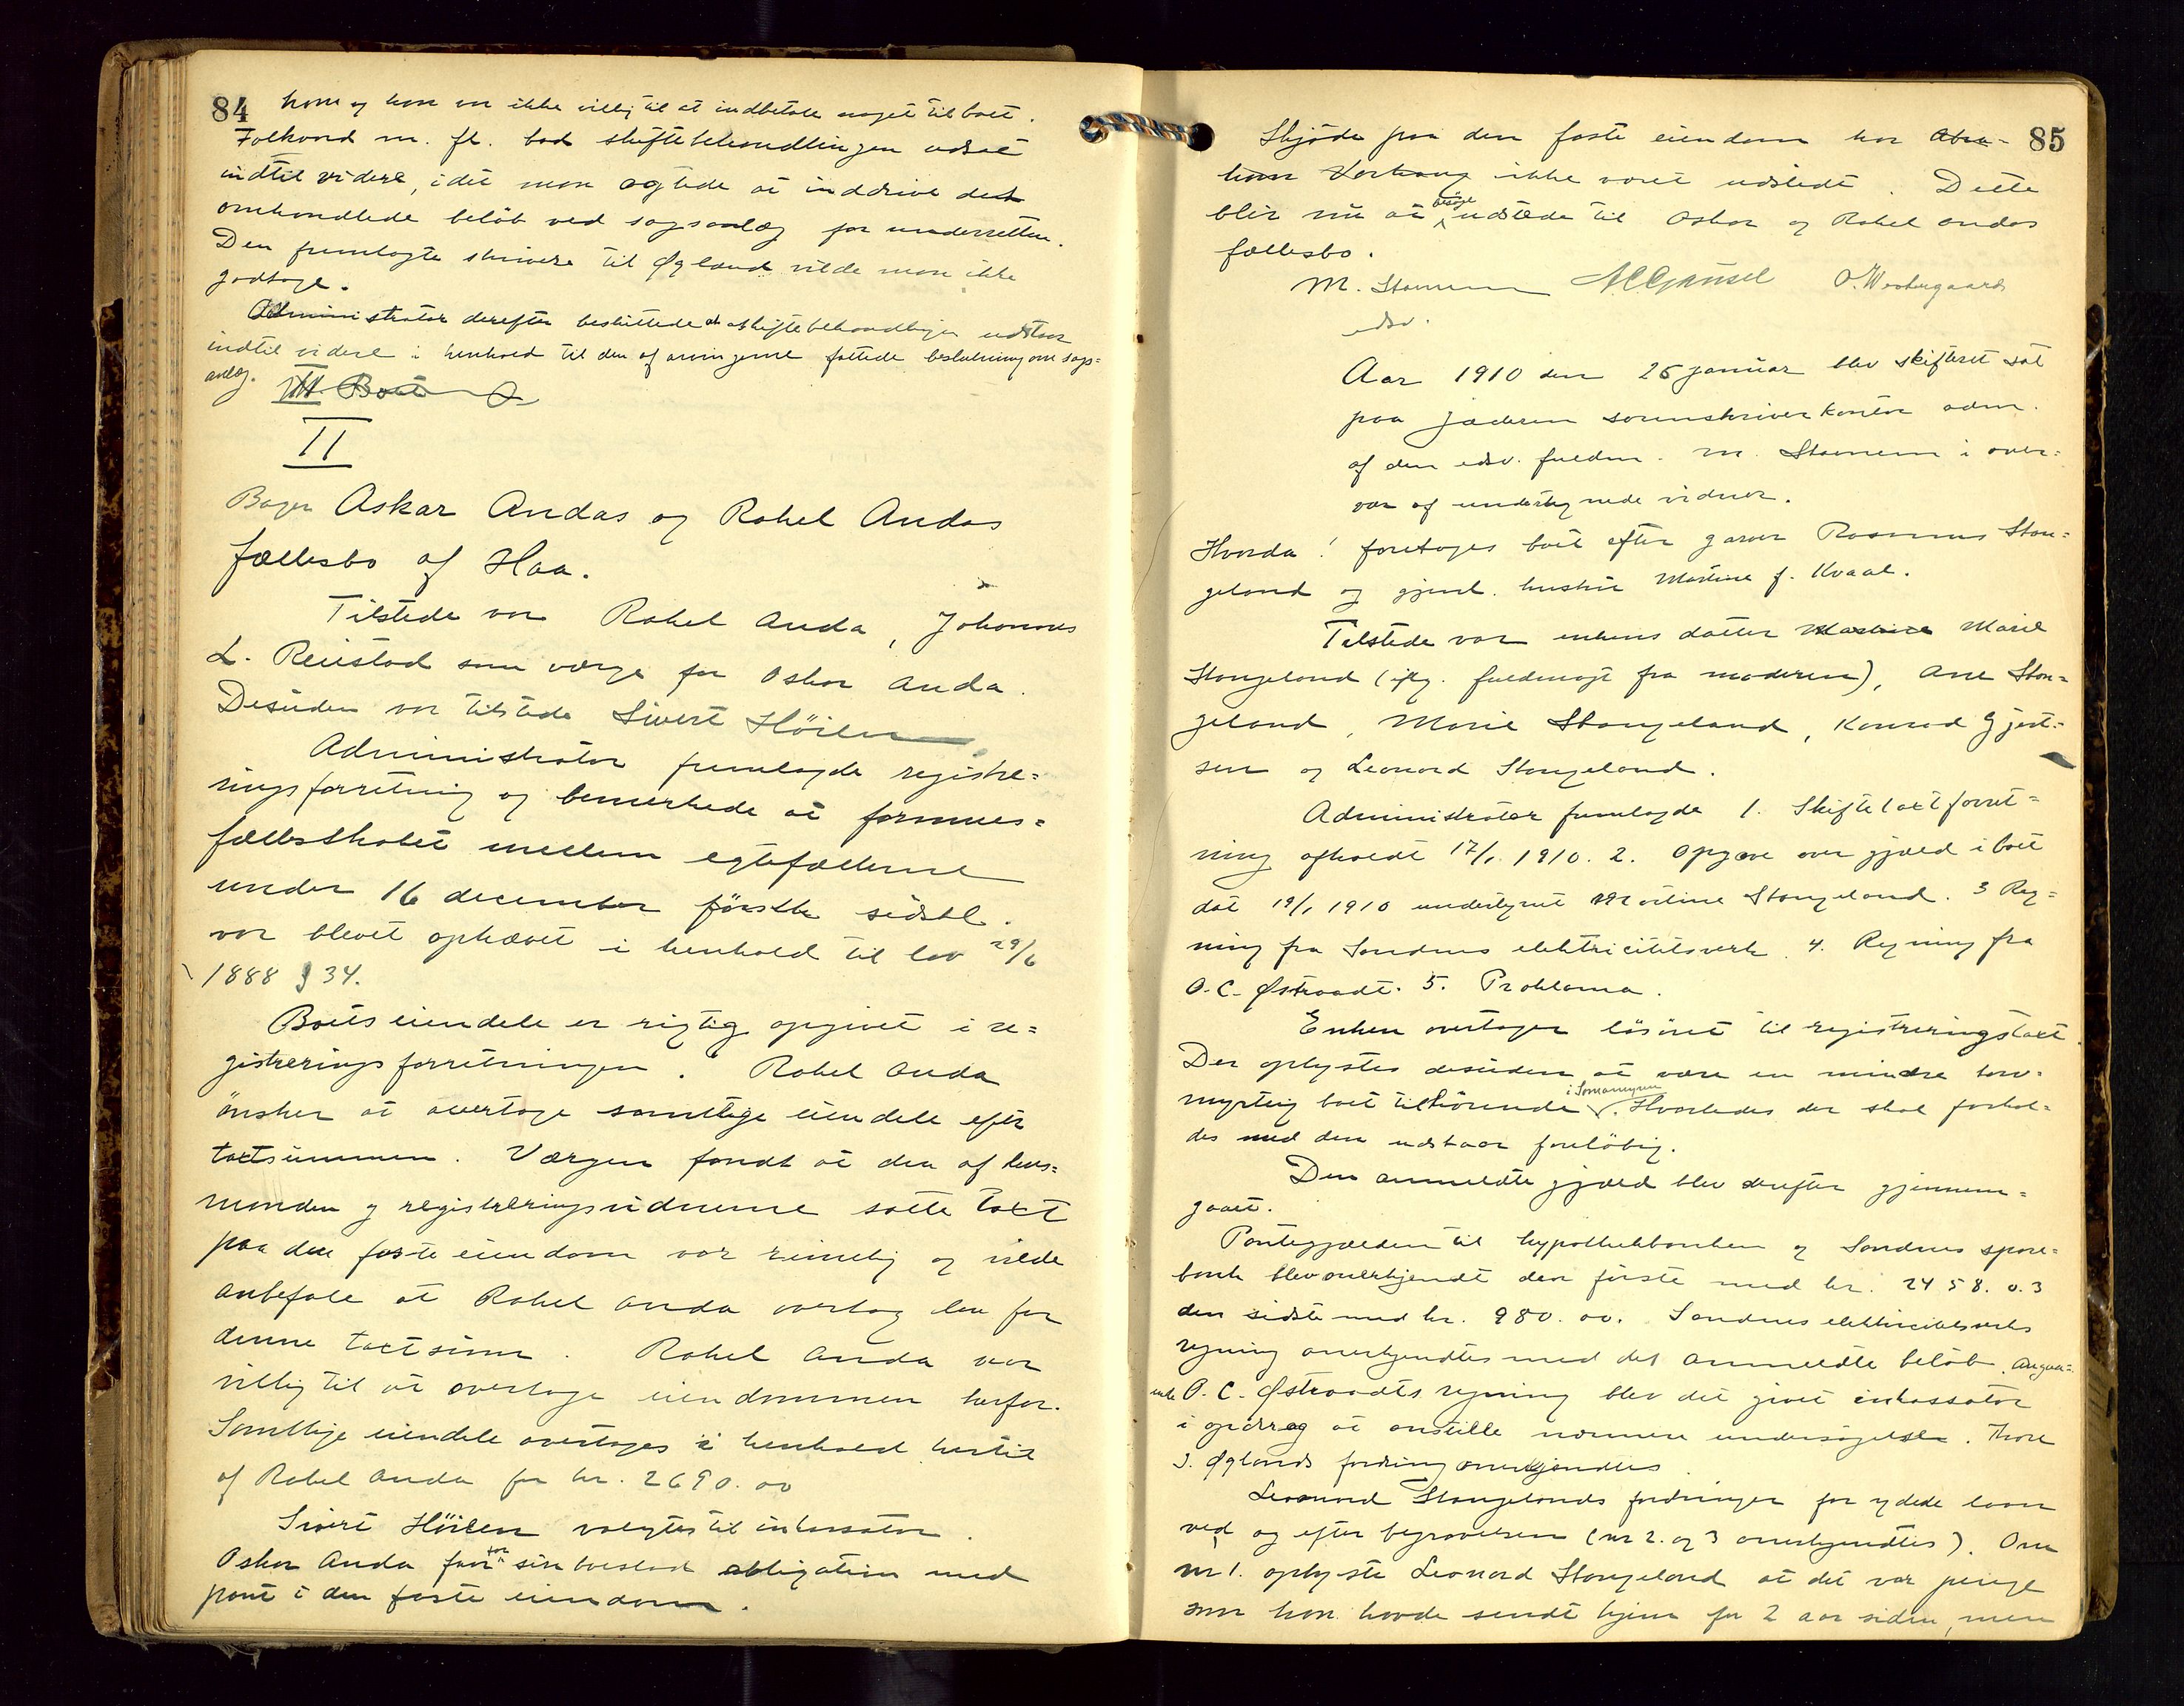 84
ham og han var ikke villig til at indbetale noget til boet.
Folkvord m. fl. bad skiftebehandlingen udsat
indtil videre, idet man agtede at inddrive det
omhandlede beløb ved sagsanlæg for underretten.
Den fremlagte skrivelse til Øgland vilde man ikke
godtage.
Administrator derefter besluttede at skiftebehandlingen udstaar
indtil videre i henhold til den af arvingerne fattede beslutning om sags=
anlæg. III. Boet
II
Bager Askar Andas og Rakel Andas
fællesbo af Haa.
Tilstede var Rakel Anda, Johannes
L. Reiestad som værge for Oskar Anda.
Desuden var tilstede Sivert Höiland
Administrator fremlagde registre=
ringsforretning og bemerkede at formues=
fællesskabet mellem egtefællerne
under 16 december förstk sidstl.
var blevet ophævet i henhold til lov 29/6
1888 § 34.
Boets eiendele er rigtig opgivet i re=
gistreringsforretningen. Rakel Anda
önsker at overtage samtlige eiendele efter
taxtsummen. Værgen fandt at den af lens=
manden og registreringsvidnerne satte taxt
paa den faste eiendom var rimelig og vilde
anbefale at Rakel Anda overtog den for
denne taxtsum. Rakel Anda var
villig til at overtage eiendommen herfor.
Samtlige eiendele overtages i henhold hertil
af Rakel Anda for kr. 2690.00
Sivert Höiland valgtes til inkassator.
Oskar Anda faar for sin boeslod obligation med
pant i den faste eiendom.
85
Skjöde paa den faste eiendom har Abra=
ham Varhaug ikke været udstedt. Dette
blir nu at besörge udstede til Oskar og Rakel Andas
fællesbo.
M. Stamnem A C Gjansel O. Westergaard
edsv.
Aar 1910 den 25 januar blev skifteret sat
paa Jæderen sorenskriverkontor adm.
af den edsv. fuldm. M. Stamnem i over=
vær af undertegnede vidner.
Hvorda! foretoges boet efter garver Rasmus Stan=
geland og gjenl. hustru Martine f. Kvaal.
Tilstede var enkens datter Martine Marie
Stangeland (iflg. fuldmagt fra moderen), Ane Stan=
geland, Marie Stangeland, Konrad Gjert=
sen og Leonard Stangeland.
Administrator fremlagde 1. Skiftetaxtforret=
ning afholdt 17/1 1910. 2. Opgave over gjæld i boet
dat 19/1 1910 undertegnet Martine Stangeland. 3 Reg=
ning fra Sandnes elektricitetsverk. 4. Regning fra
O. C. Østraadt. 5. Proklama.
Enken overtager lösöret til registreringstaxt.
Der oplystes desuden at være en mindre torv=
myrteig boet tilhörende i Somamyren. Hvorledes der skal forhol=
des med den udstaar foreløbig.
Den anmeldte gjæld blev derefter gjennem=
gaaet.
Pantegjælden til hypothekbanken og Sandnes spare=
bank blev anerkjendt den förste med kr. 2458.03
den sidste med kr. 980.00. Sandnes elektricitetsverks
regning anerkjendtes med det anmeldte beløb. Angaa=
ende O. C. Østraadts regning blev det givet inkassator
i opdrag at anstille nærmere undersögelser. Thore
S. Øglands fordring anerkjendtes.
Leonard Stangelands fordringer for ydede laan
ved og efter begravelsen (nr 2. og 3 anerkjendtes). Om
nr 1. oplyste Leonard Stangeland at det var penge
som han havde sendt hjem for 2 aar siden, men